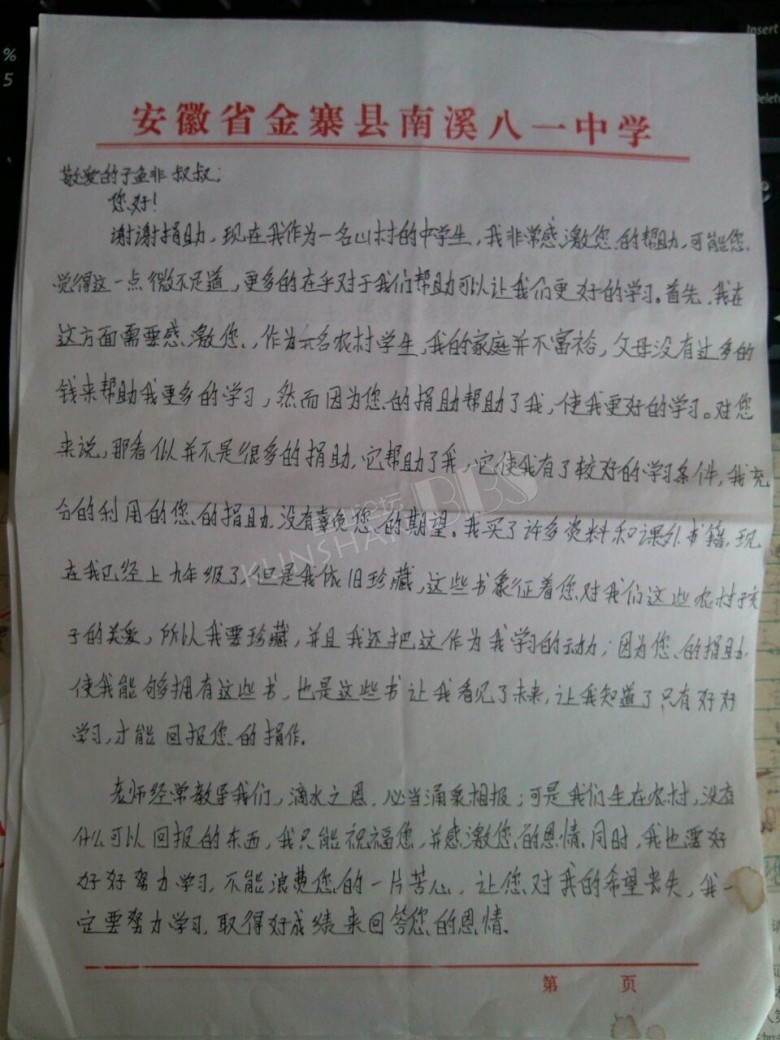 安徽省金寨县南溪八一中学
敬爱的子鱼非叔叔:
您好!
谢谢捐助,现在我作为一名山村的中学生,我非常感激您的帮助,可能您
觉得这一点微不足道,更多的在乎对于我们帮助可以让我们更好的学习。首先,我在
这方面需要感激您,作为一名农村学生,我的家庭并不富裕,父母没有过多的
钱来帮助我更多的学习,然而因为您的捐助帮助了我,使我更好的学习。对您
来说,那看似并不是很多的捐助,它帮助了我,它使我有了较好的学习条件,我充
分的利用的您的捐助,没有辜负您的期望。我买了许多资料和课外书籍,现
在我已经上九年级了,但是我依旧珍藏,这些书象征着您对我们这些农村孩
子的关爱,所以我要珍藏,并且我还把这作为我学习的动力;因为您的捐助
使我能够拥有这些书,也是这些书让我看见了未来,让我知道了只有好好
学习,才能回报您的捐作。
老师经常教导我们,滴水之恩,必当涌泉相报;可是我们生在农村,没有
什么可以回报的东西,我只能祝福您,并感激您的恩情,同时,我也要好
好好努力学习,不能浪费您的一片苦心,让您对我的希望丧失,我一
定要努力学习,取得好成绩来回答您的恩情.
第 页
KUNSHAN BBS
论坛
% 
5
Insert
Delete